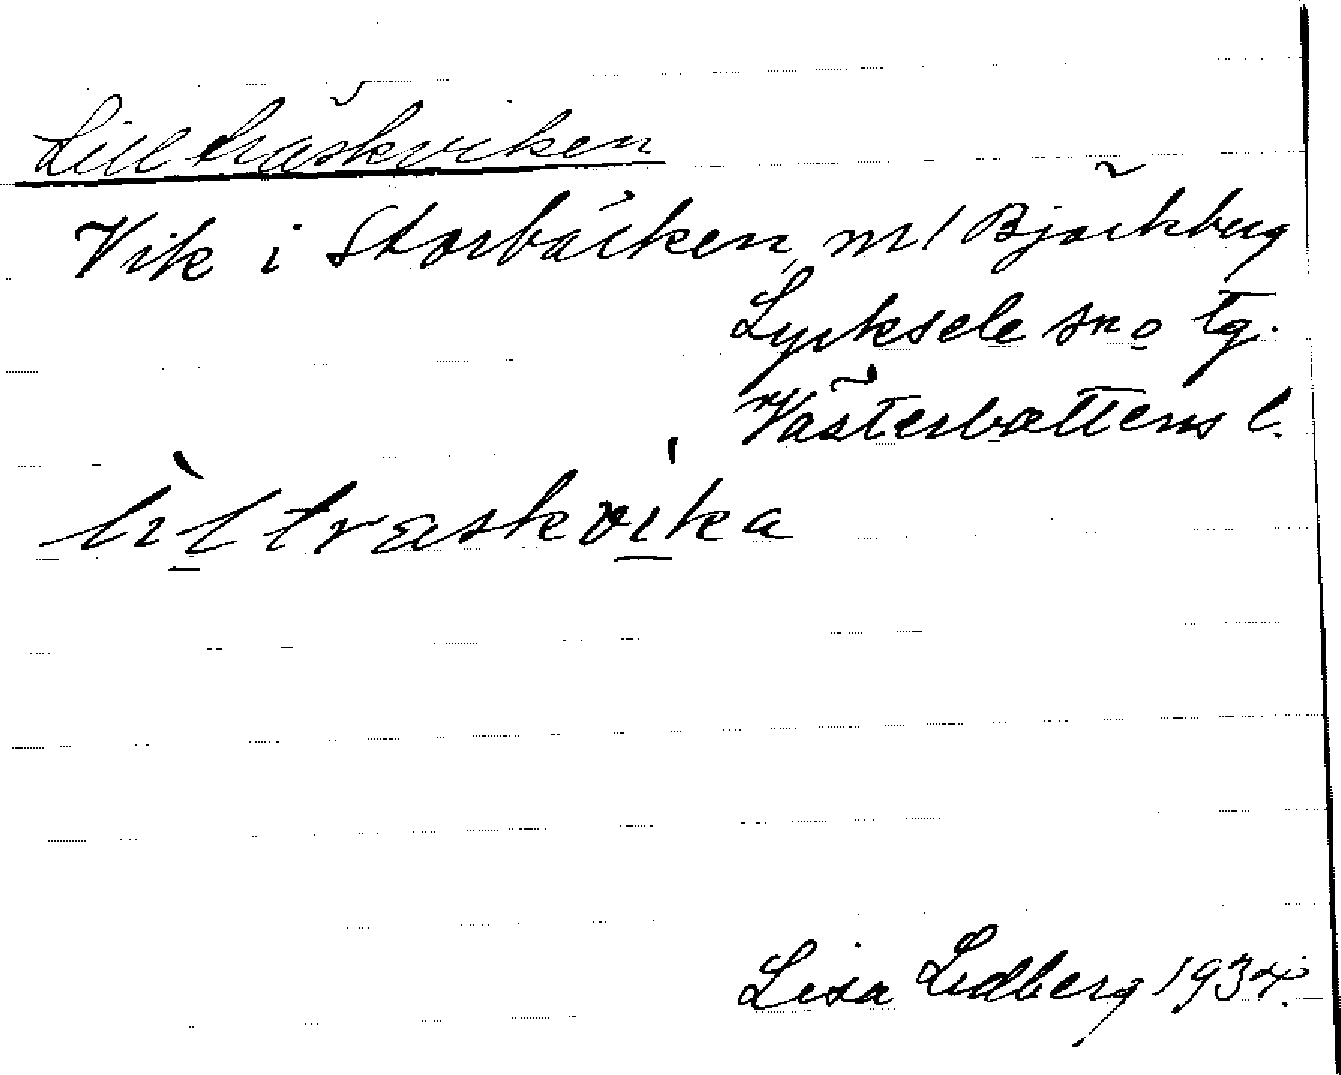 Lillträskviken
Vik i Storbäcken, m/ Björkberg
Lycksele sn o tg.
Västerbottens l.
lìltræskvíka
Lisa Lidberg 1934.